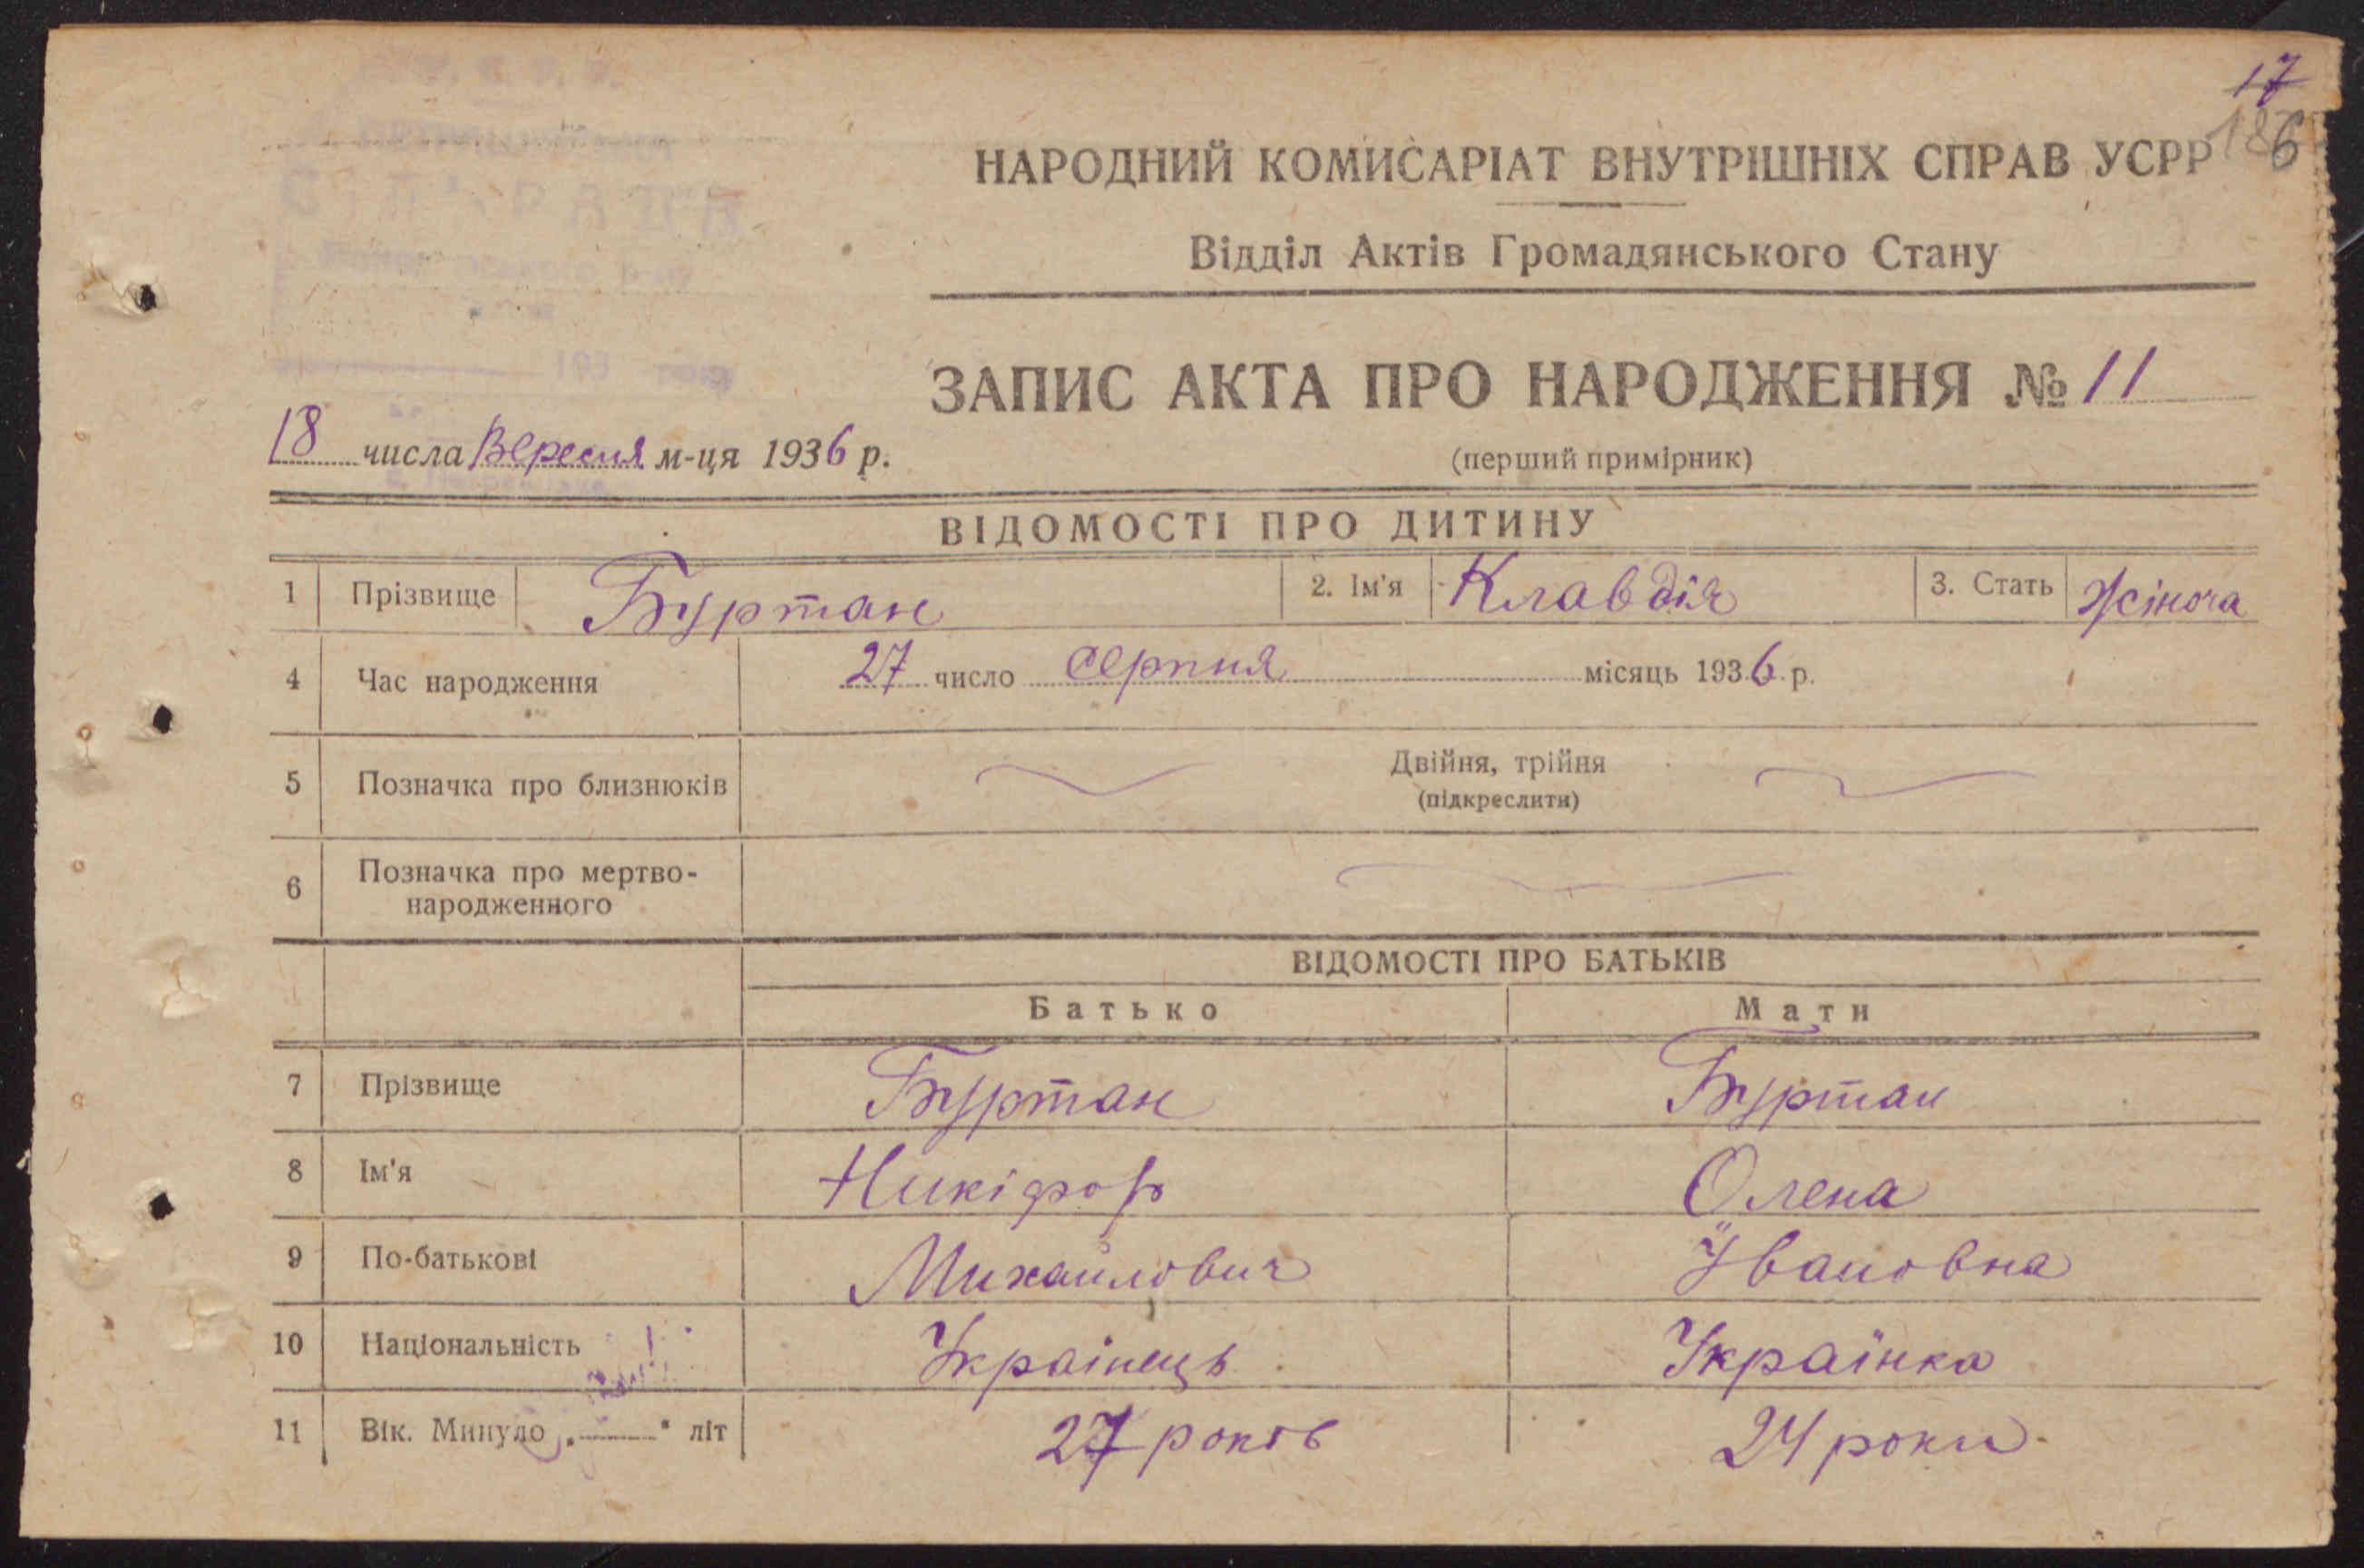 17
186
НАРОДНИЙ КОМИСАРІАТ ВНУТРІШНІХ СПРАВ УСРР
Відділ Актів Громадянського Стану
ЗАПИС АКТА ПРО НАРОДЖЕННЯ № 11
18 числа Вересня м-ця 1936 р.
(перший примірник)
ВІДОМОСТІ ПРО ДИТИНУ
1 Прізвище Буртан 2. Ім'я Клавдія 3. Стать Жіноча
4 Час народження 27 число серпня місяць 1936 р.
5 Позначка про близнюків Двійня, трійня
(підкреслити)
6 Позначка про мертво-
народженного
ВІДОМОСТІ ПРО БАТЬКІВ
Батько Мати
7 Прізвище Буртан Буртан
8 Ім'я Никіфор Олена
9 По-батькові Михайлович Івановна
10 Національність Українець Українка
11 Вік. Минуло „ " літ 27 років 24 роки